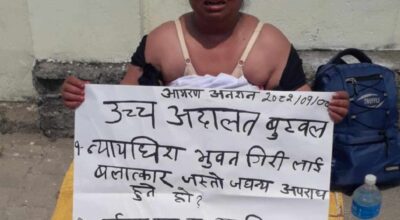 आमरण अनशन २०८२/०१/०
उच्च अदालत बुटवल
१ न्यायधिश भुवन गिरी लाई
बलात्कार जस्तो जघन्य अपराध
हुने हो?